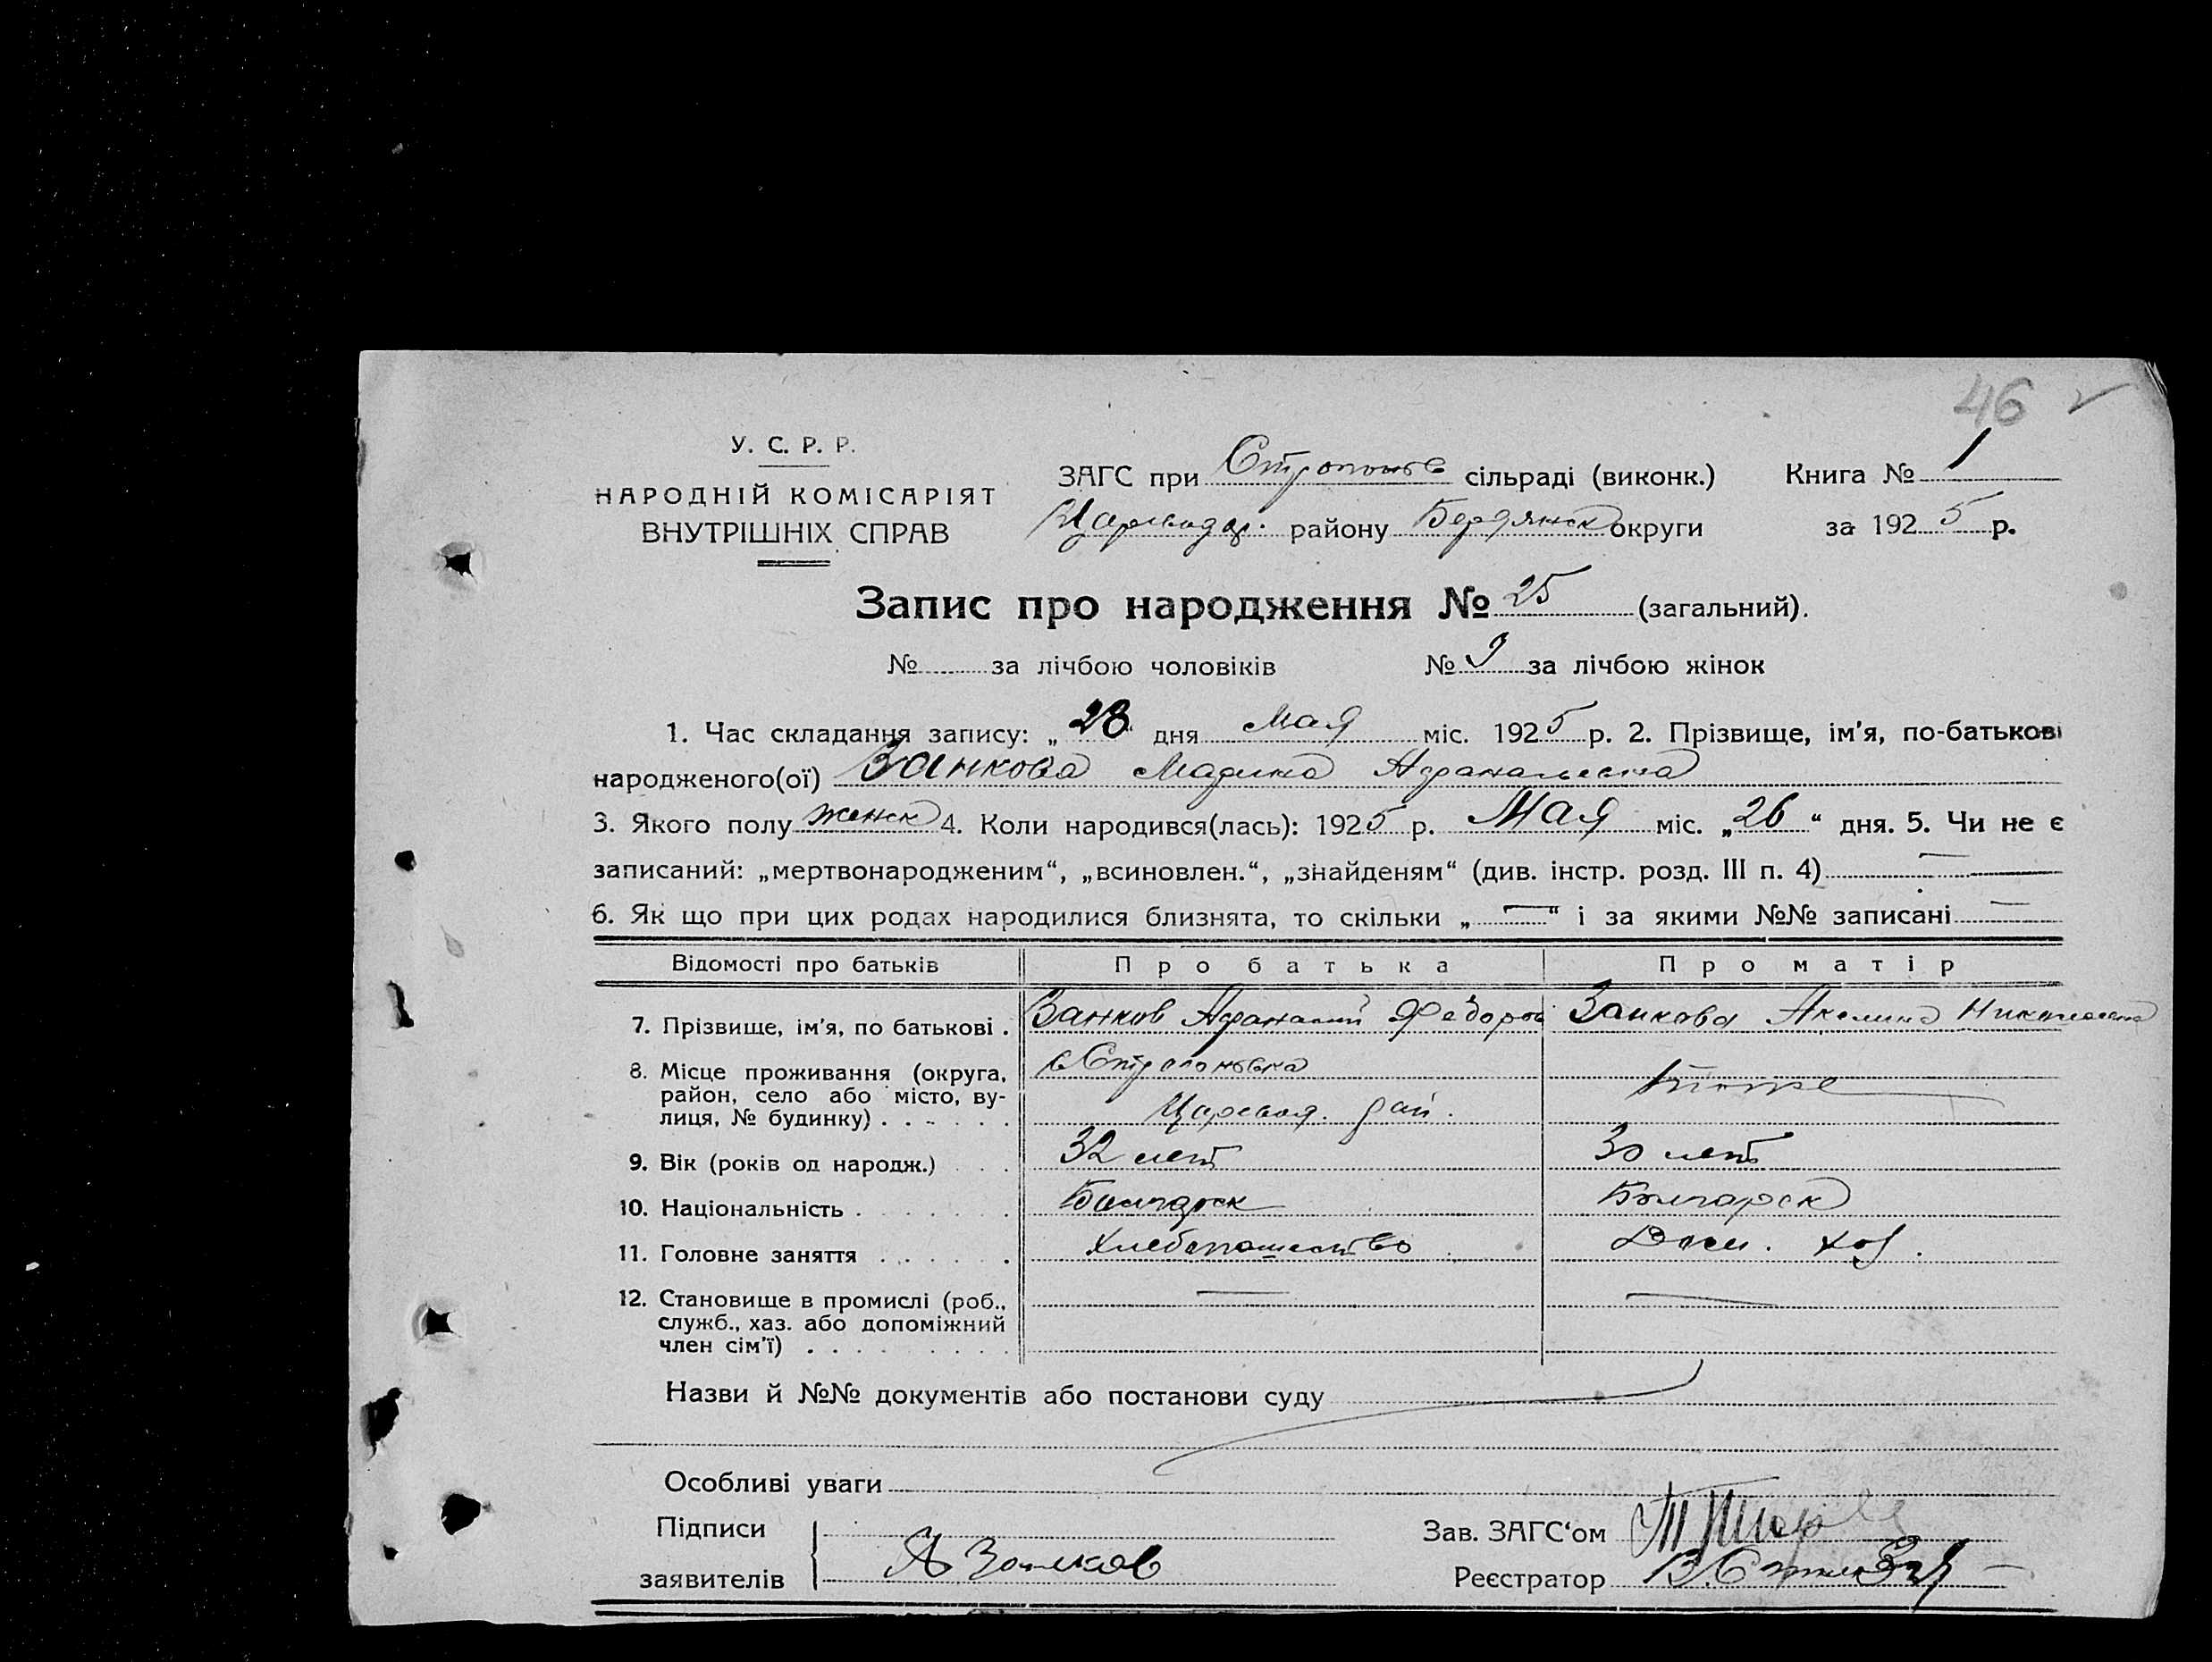 46 ✓
У. С. Р. Р.
НАРОДНІЙ КОМІСАРІЯТ
ВНУТРІШНІХ СПРАВ
ЗАГС при сільраді (виконк.) Книга № 1
району Бердянск округи за 1925 р.
Запис про народження № 25 (загальний).
№ за лічбою чоловіків № 9 за лічбою жінок
1. Час складання запису: „28“ дня Мая міс. 1925 р. 2. Прізвище, ім'я, по-батькові
народженого(ої) Занкова
3. Якого полу женск 4. Коли народився(лась): 1925 р. Мая міс. „26“ дня. 5. Чи не є
записаний: „мертвонародженим“, „всиновлен.“, „знайденям“ (див. інстр. розд. III п. 4) —
6. Як що при цих родах народилися близнята, то скільки „—“ і за якими №№ записані —
Відомості про батьків Про батька Про матір
7. Прізвище, ім'я, по батькові . Занков Афанасий Федоров Занкова Акелина Николаевна
8. Місце проживання (округа,
район, село або місто, ву-
лиця, № будинку) . . . . . .
Царевод. рай.
тоже
9. Вік (років од народж.) . . . 32 лет 30 лет
10. Національність . . . . . . Болгарск Болгарск
11. Головне заняття . . . . . . Хлебопашество Дом. хоз.
12. Становище в промислі (роб., — —
служб., хаз. або допоміжний
член сім'ї) . . . . . . . . .
Назви й №№ документів або постанови суду
Особливі уваги
Підписи Зав. ЗАГС‘ом
заявителів А Занков Реєстратор